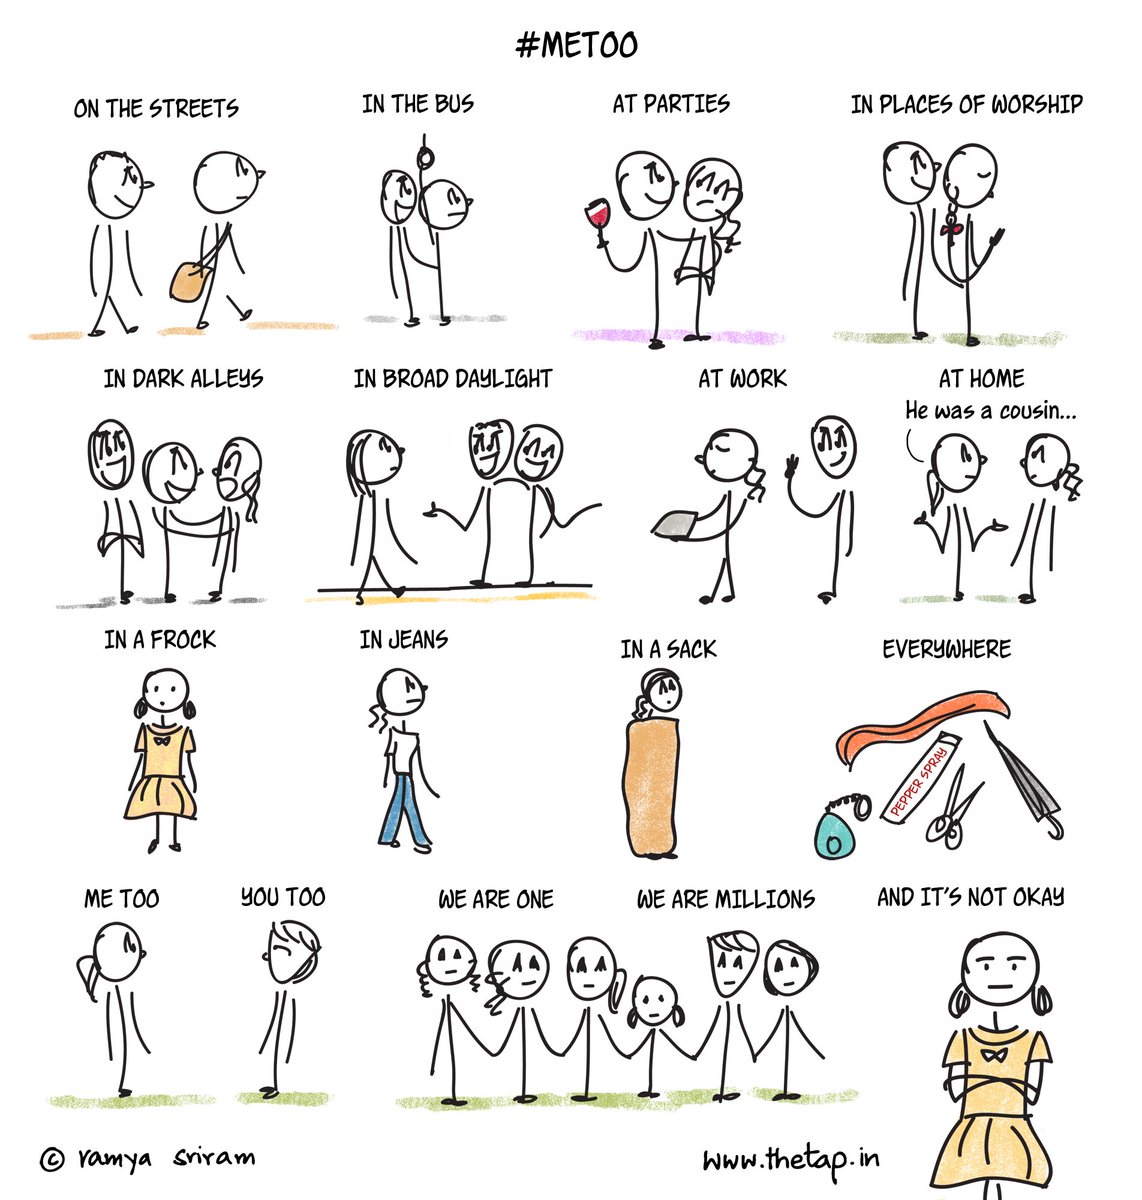 #METOO
ON THE STREETS
IN THE BUS
AT PARTIES
IN PLACES OF WORSHIP
IN DARK ALLEYS
IN BROAD DAYLIGHT
AT WORK
AT HOME
He was a cousin...
IN A FROCK
IN JEANS
IN A SACK
EVERYWHERE
PEPPER SPRAY
ME TOO
YOU TOO
WE ARE ONE
WE ARE MILLIONS
AND IT'S NOT OKAY
© ramya sriram
www.thetap.in